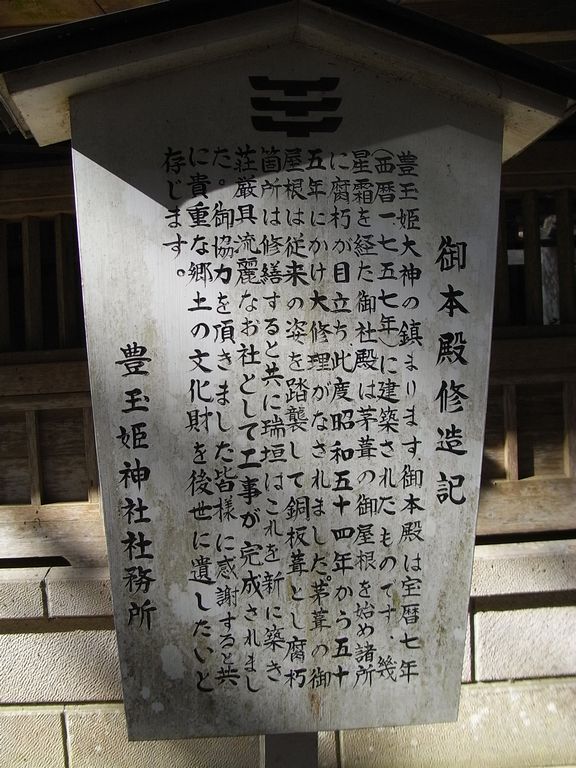 御本殿修造記
豊玉姫大神の鎮まります御本殿は宝暦七年
(西暦一七五七年)に建築されたものです、幾
星霜を経た御社殿は茅葺の御屋根を始め諸所
に腐朽が目立ち此度昭和五十四年から五十
五年にかけ大修理がなされました。茅葺の御
屋根は従来の姿を踏襲して銅板葺とし腐朽
箇所は修繕すると共に瑞垣はこれを新に築き
荘厳且流麗なお社として工事が完成されまし
た。御協力を頂きました皆様に感謝すると共
に貴重な郷土の文化財を後世に遺したいと
存じます。
豊玉姫神社社務所